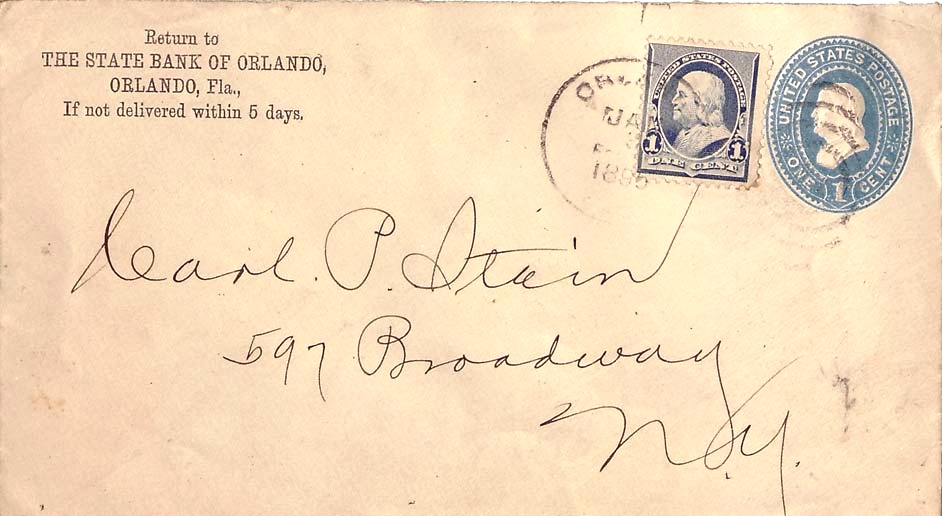 Return to
THE STATE BANK OF ORLANDO,
ORLANDO, Fla.,
If not delivered within 5 days.
UNITED STATES POSTAGE
1 1
ONE CENT
UNITED STATES POSTAGE
ONE 1 CENT
1895
Carl. P. Stein
597 Broadway
N.Y.